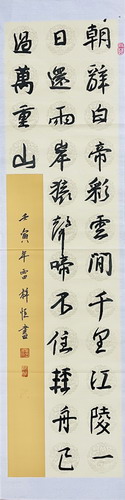 朝辭白帝彩雲間千里江陵一
日還兩岸猿聲啼不住輕舟已
過萬重山
壬寅年雷祥恒書